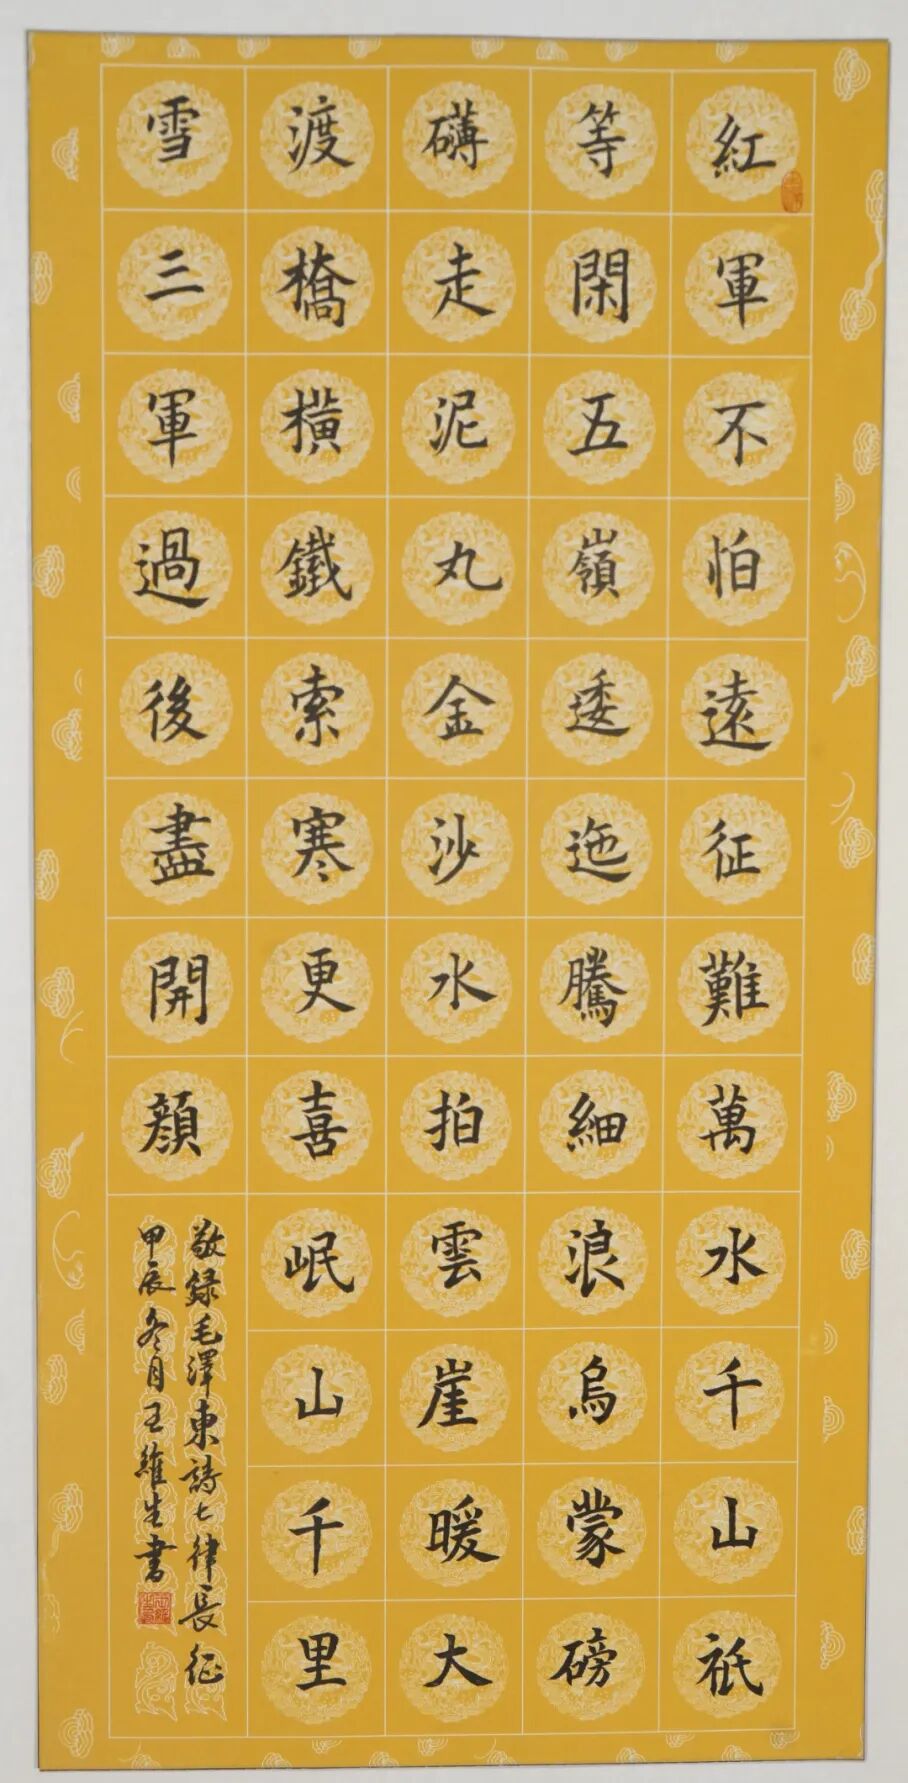 紅軍不怕遠征難萬水千山祇
等閑五嶺逶迤騰細浪烏蒙磅
礴走泥丸金沙水拍雲崖暖大
渡橋橫鐵索寒更喜岷山千里
雪三軍過後盡開顏
敬録毛澤東詩七律長征
甲辰冬月王維生書